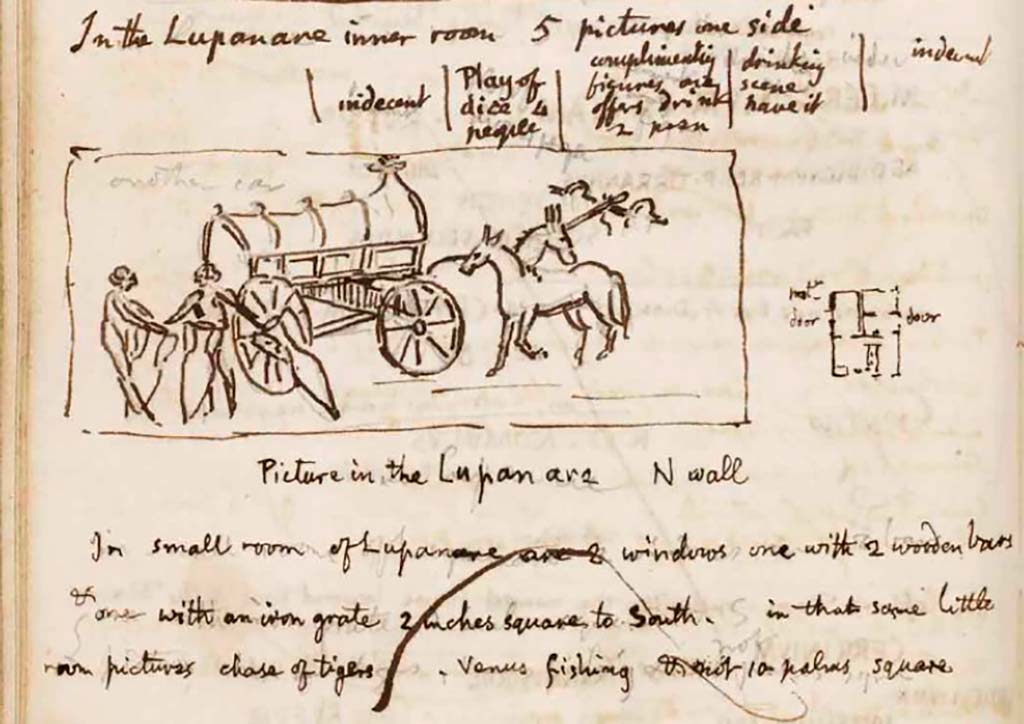 In the Lupanare inner room 5 pictures one side
indecent
Play of
dice 4
people
complimenting
figures one
offers drink
2 men
drinking
scene
have it
indecent
another car
door
door
Picture in the Lupanare N wall
In small room of Lupanare are 2 windows one with 2 wooden bars
& one with an iron grate 2 inches square to South. in that same little
room pictures chase of tigers . Venus fishing & not 10 palms square